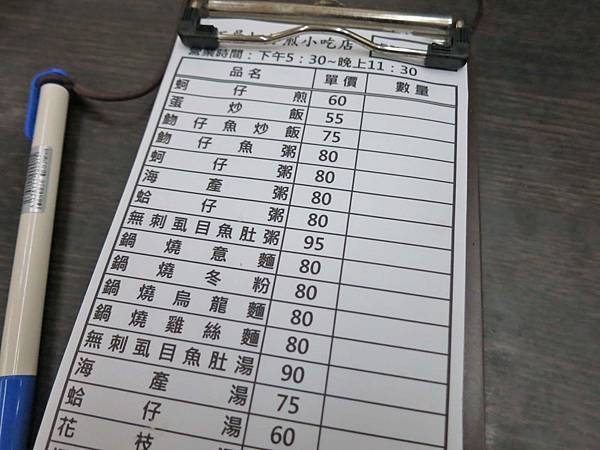 小吃店
營業時間：下午5：30~晚上11：30
品名 單價 數量
蚵仔煎 60
蛋炒飯 55
魩仔魚炒飯 75
魩仔魚粥 80
蚵仔粥 80
海產粥 80
蛤仔粥 80
無刺虱目魚肚粥 95
鍋燒意麵 80
鍋燒冬粉 80
鍋燒烏龍麵 80
鍋燒雞絲麵 80
無刺虱目魚肚湯 90
海產湯 75
蛤仔湯 60
花枝